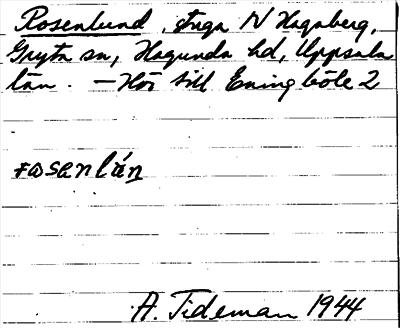 Rosenlund, stuga N Hagaberg,
Gryta sn, Hagunda hd, Uppsala
län. – Hör till Eningböle 2
rosenlán
A. Tideman 1944